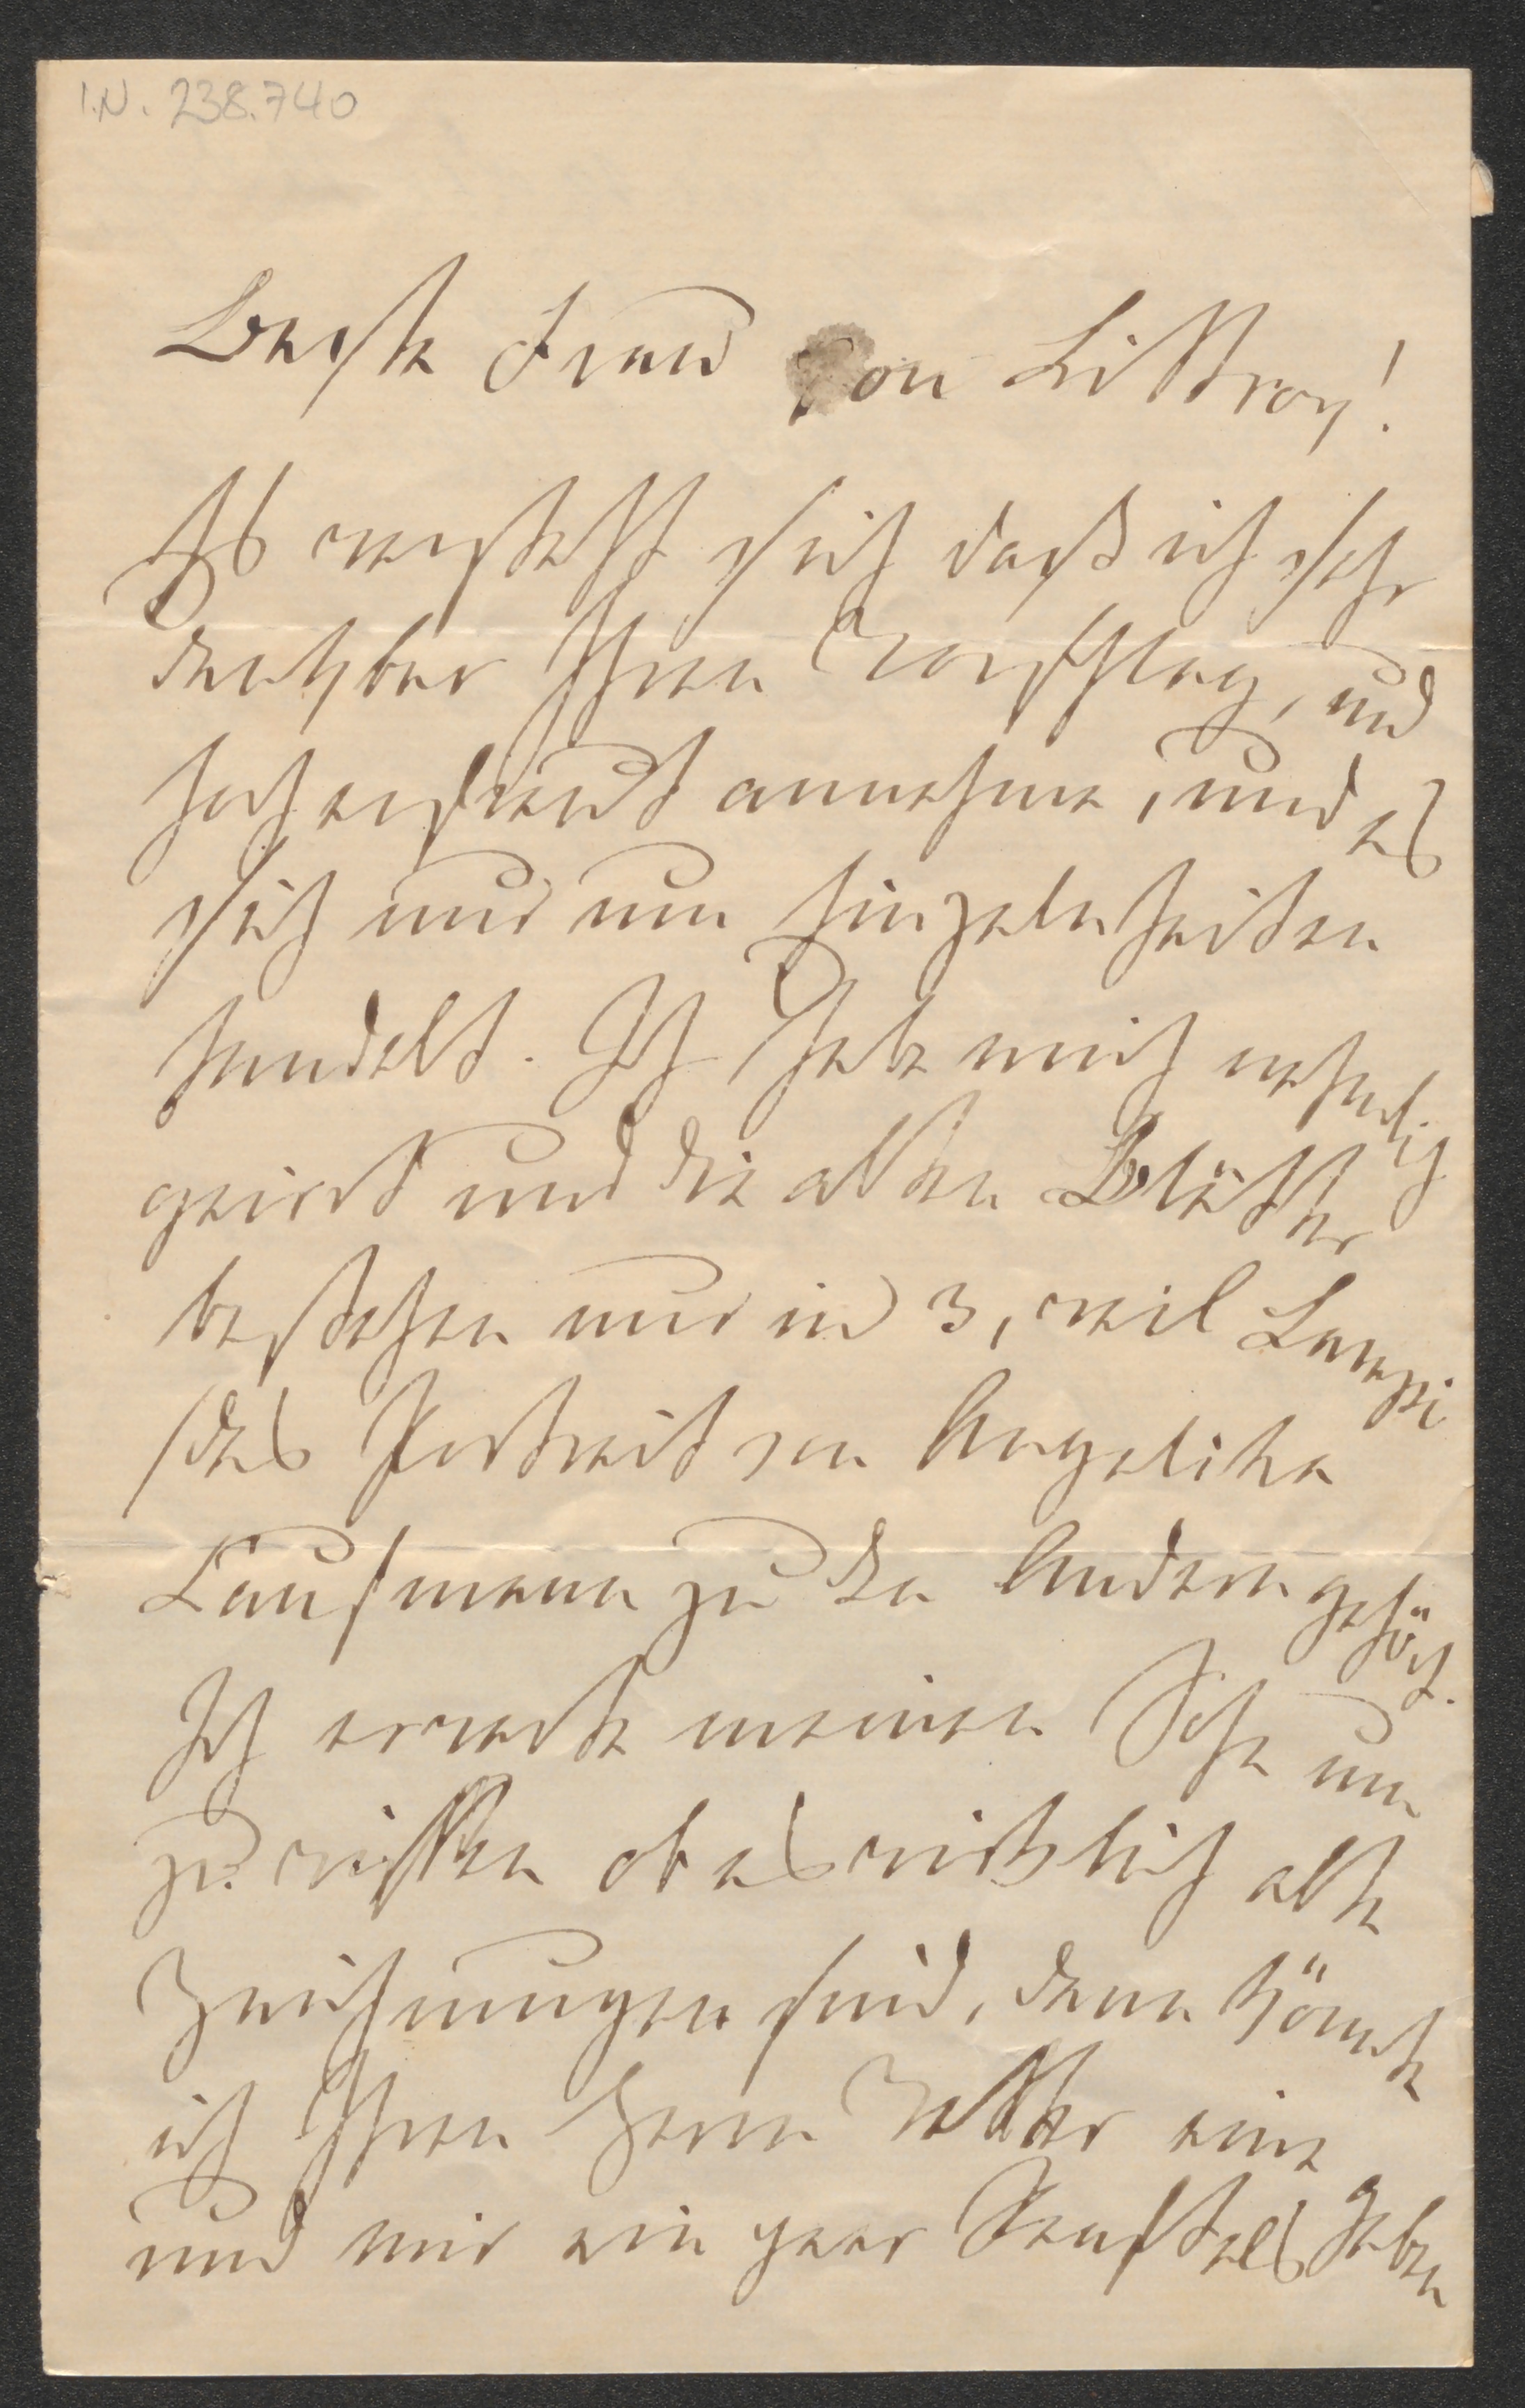 I.N. 238.740
Beste Frau von Littrow!
Es versteht sich daß ich sehr
dankbar Ihren Vorschlag, und
hocherfreut annehme, und es
sich nur um Einzelnheiten
handelt. Ich habe mich nehmlich
geirrt und die alten Blätter
bestehen nur in 3, weil Lampi
das Portrait von Angelika
Kaufmann zu den Andern gehört.
Ich erwarte meinen um
zu wissen ob es wirklich alte
Zeichnungen sind, dann könnte
ich Ihren Herrn Vetter eine
und mir ein paar geben